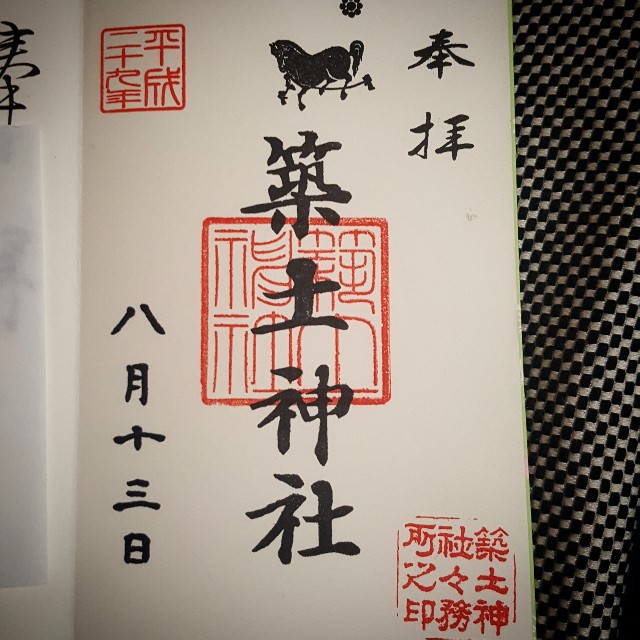 奉拝
築土神社
築土神
社々務
所之印
築土
神社
平成
二十九年
八月十三日
奉